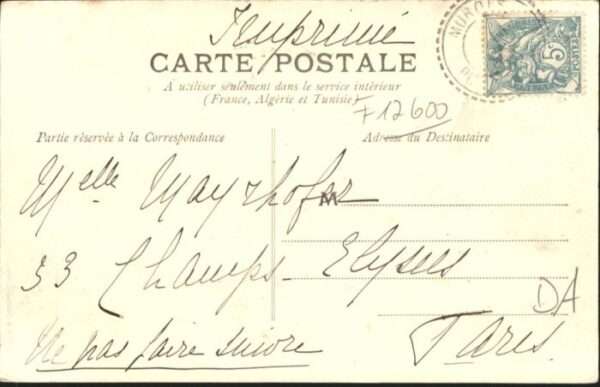 Imprimé
CARTE POSTALE
A utiliser seulement dans le service intérieur
(France, Algérie et Tunisie)
F 12600
Partie réservée à la Correspondance
Adresse du Destinataire
5
Melle Mayrhofer
M
53 Champs-Elysees
DA
Paris
Ne pas faire suivre